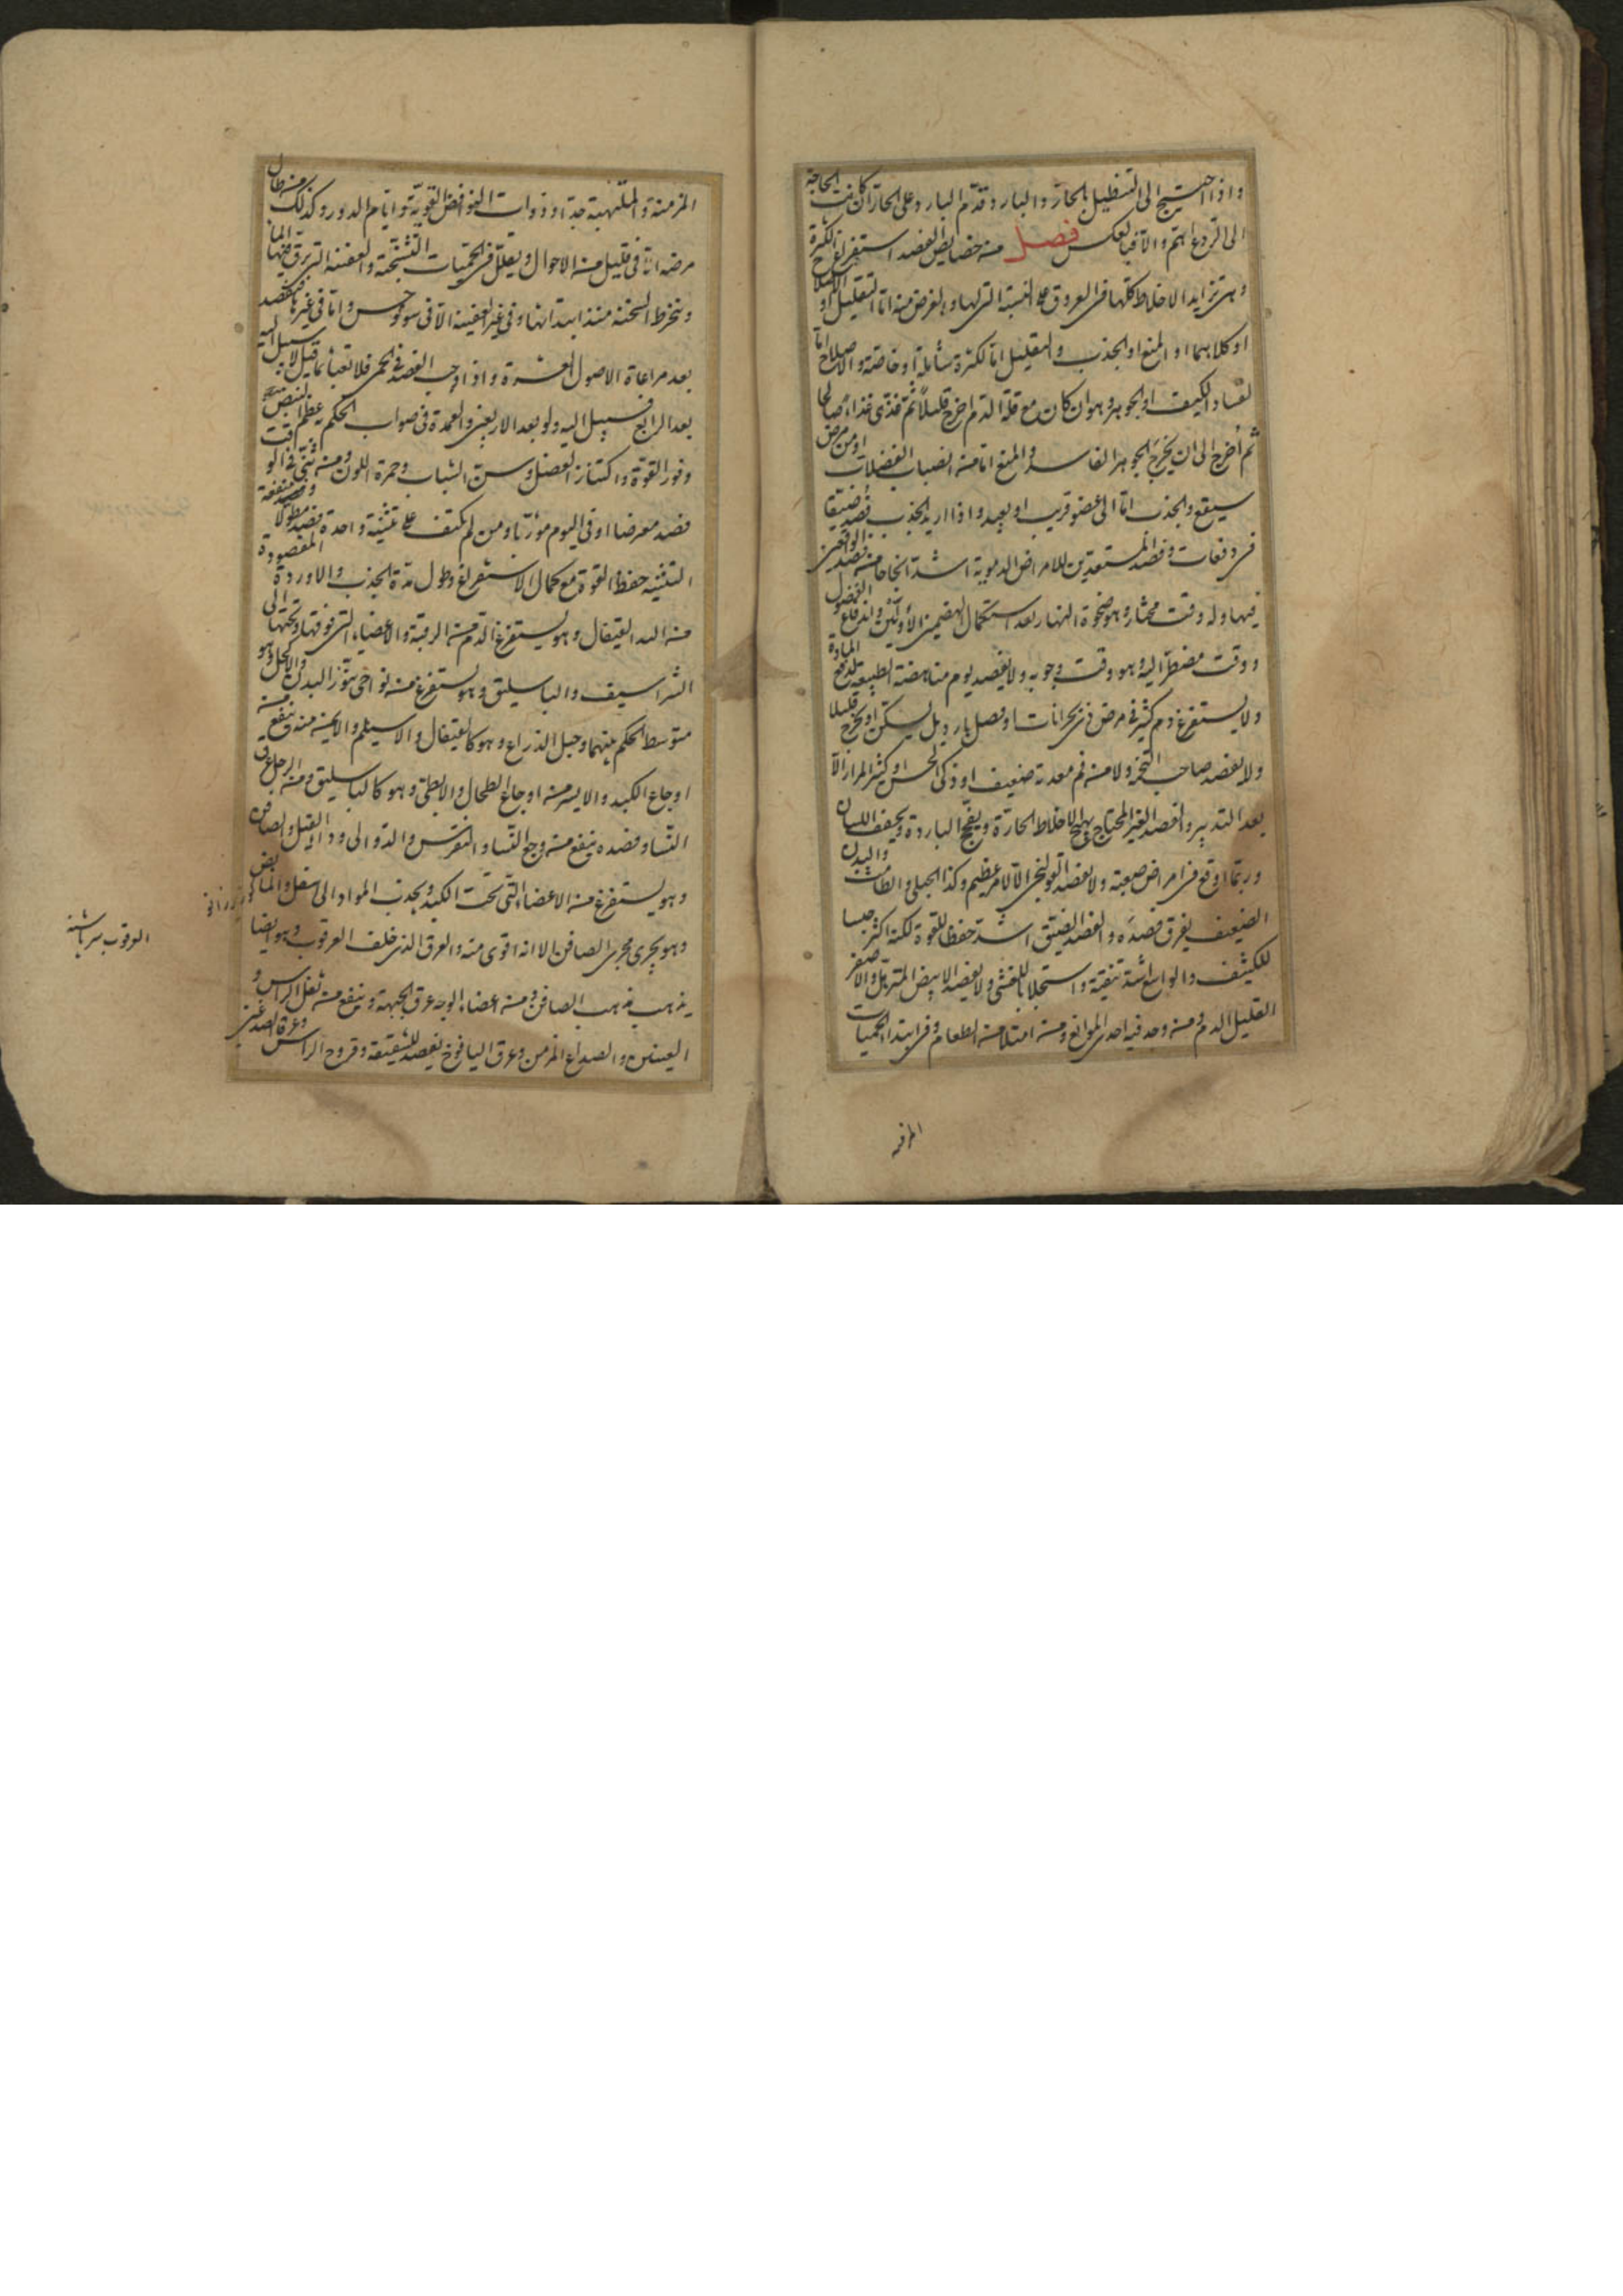 واذا احتيج الى التنطيل بالحار والبارد قدم البارد على الحار ان كانت الحاجة
الى الردع اهم والا فبالعكس فصل من خصايص الفصد استفراغ الكثرة
وهى تزايد الاخلاط كلها فى العروق على النسبة التى لها والغرض منه اما التقليل او الاصلاح
او كلاهما او المنع او الجذب والتقليل اما لكثرة شاملة او خاصة والاصلاح اما
لفساد الكيف او الجوهر وهو ان كان مع قلة الدم اخرج قليلا ثم غذى غذاء صالحا
ثم اخرج الى ان يخرج الجوهر الفاسد والمنع اما من انصباب الفضلات او من مرض
سيقع والجذب اما الى عضو قريب او بعيد واذا اريد الجذب فصد ضيقا
فى دفعات وفصد المستعدين للامراض الدموية اشد انجاحا من فصد الواقعين
فيها وله وقت مختار وهو ضحوة النهار بعد استكمال الهضمين الاولين واندفاع الفضول
ووقت مضطر اليه وهو وقت وجوبه ولا يفصد يوم مناهضة الطبيعة لدفع المادة
ولا يستفرغ دم كثير فى مرض ذى بحرانات او فصل بارد بل يسكن او يخرج قليلا
ولا يفصد صاحب التخمة ولا من فم معدته ضعيف او ذكى الحس او كثير المرار الا
بعد التدبير والفصد الغير المحتاج يهيج الاخلاط الحارة ويفج الباردة ويجفف اللسان والبدن
وربما اوقع فى امراض صعبة ولا يفصد القولنجى الا لامر عظيم وكذا الحبلى والطامث
الضعيف يفرق فصده والفصد الضيق اشد حفظا للقوة لكنه اكثر حبسا
للكثيف والواسع اشد تنقية واستجلابا للغشى ولا يفصد الابيض المترهل والاصفر
القليل الدم ومن وجد فيه احدى الموانع ومن امتلا من الطعام وفى ابتداء الحميات
المزمنة
المزمنة والملتهبة جدا وذوات النوافض القوية وايام الدور وكذلك من طال
مرضه الا فى قليل من الاحوال ويقلل فى الحميات التشنجية والعفنة التى يرق فيها الماء
وينخرط السحنة منذ ابتدائها وفى غير العفينة الا فى سونوخس واما فى غيرها فيفصد
بعد مراعاة الاصول العشرة واذا وجب الفصد فى الحمى فلا تعبأ بما قيل لا سبيل اليه
بعد الرابع فسبيل اليه ولو بعد الاربعين والعمدة فى صواب الحكم عظم النبض
وفور القوة واكتناز العضل وسن الشباب وحمرة اللون ومن ثنى فى الوقت
فصد معرضا او فى اليوم مؤربا ومن لم يكتف على تثنية واحدة فصد مطولا ومنفعة
التثنية حفظ القوة مع كمال الاستفراغ وطول مدة الجذب والاوردة المفصودة
من اليد القيفال وهو يستفرغ الدم من الرقبة والاعضاء التى فوقها وتحتها الى
الشراسيف والباسليق وهو يستفرغ من نواحى تنور البدن والاكحل وهو
متوسط الحكم بينهما وحبل الذراع وهو كالقيفال والاسيلم والايمن منه ينفع من
اوجاع الكبد والايسر من اوجاع الطحال والابطى وهو كالباسليق ومن الرجل عرق
النسا وفصده ينفع من وجع النسا والنقرس والدوالى وداء الفيل والصافن
وهو يستفرغ من الاعضاء التى تحت الكبد ويجذب المواد الى اسفل والمابض
وهو يجرى مجرى الصافن الا انه اقوى منه والعرق الذى خلف العرقوب وهو ايضا
يذهب مذهب الصافن ومن اعضاء الوجه عرق الجبهة وينفع من ثقل الراس و
العينين والصداع المزمن وعرق اليافوخ يفصد للشقيقة وقروح الراس وعرقا الصدغين
العرقوب سرپاشنه